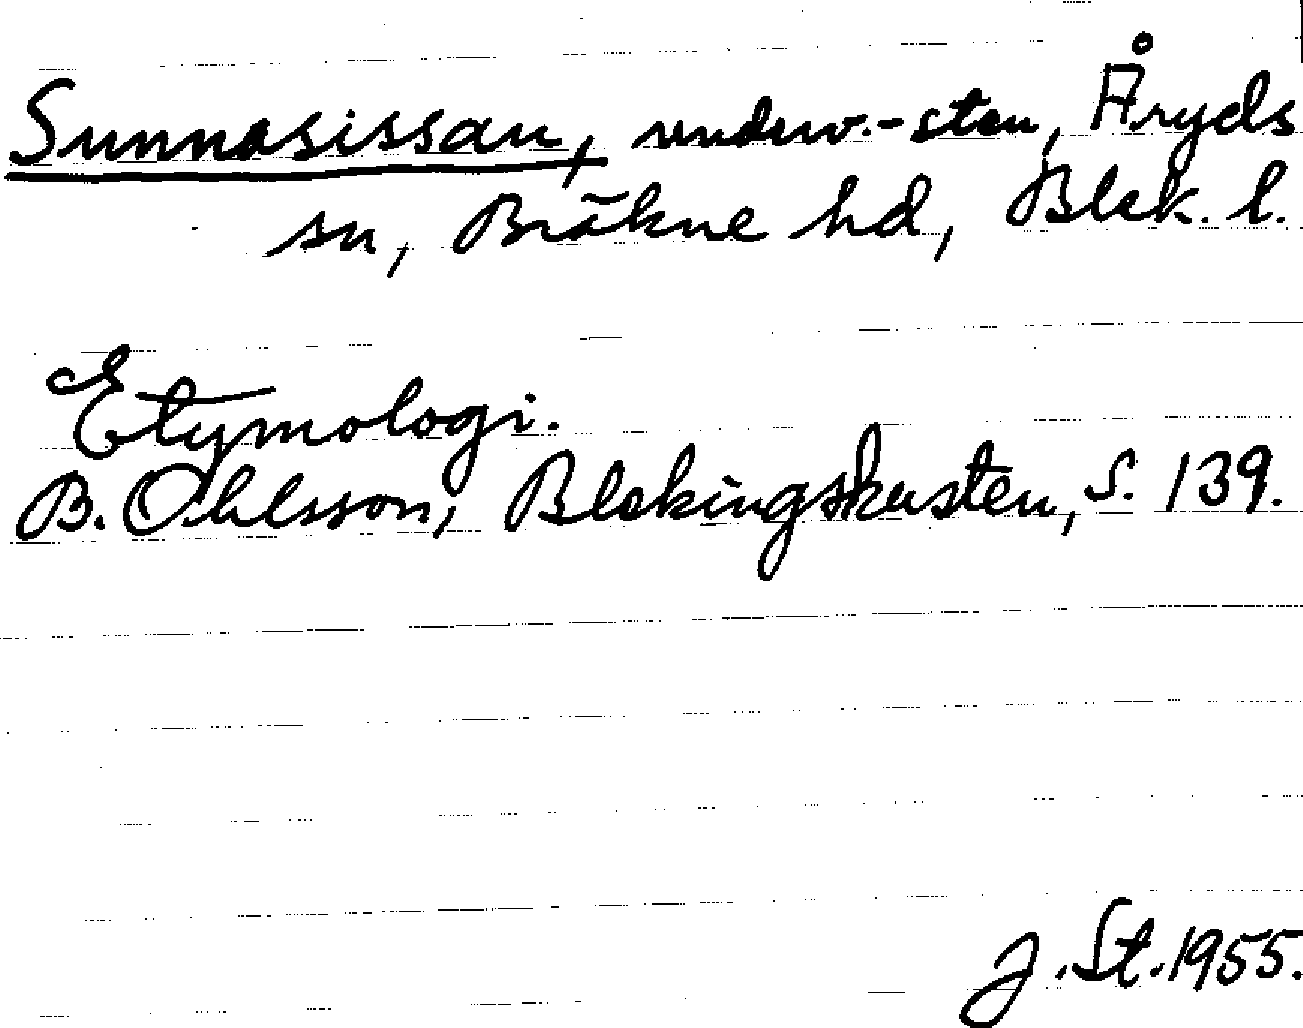 Sunnasissan, underv.-sten, Åryds
sn, Bräkne hd, Blek. l.
Etymologi.
B. Ohlsson, Blekingskusten, S. 139.
J. St. 1955.